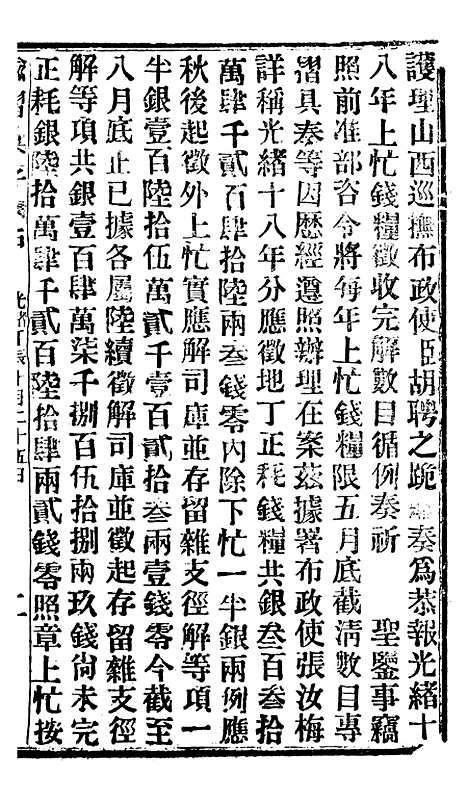 護理山西巡撫布政使臣胡聘之跪奏爲恭報光緒十
八年上忙錢糧徵收完解數目循例奏祈　聖鑒事竊
照前准部咨令將每年上忙錢糧限五月底截清數目專
摺具奏等因歷經遵照辦理在案茲據署布政使張汝梅
詳稱光緒十八年分應徵地丁正耗錢糧共銀叁百叁拾
萬肆千貳百肆拾陸兩叁錢零內除下忙一半銀兩例應
秋後起徵外上忙實應解司庫並存留雜支徑解等項一
半銀壹百陸拾伍萬貳千壹百貳拾叁兩壹錢零今截至
八月底止已據各屬陸續徵解司庫並徵起存留雜支徑
解等項共銀壹百肆萬柒千捌百伍拾捌兩玖錢尙未完
正耗銀陸拾萬肆千貳百陸拾肆兩貳錢零照章上忙按
諭摺彙存
二十五日